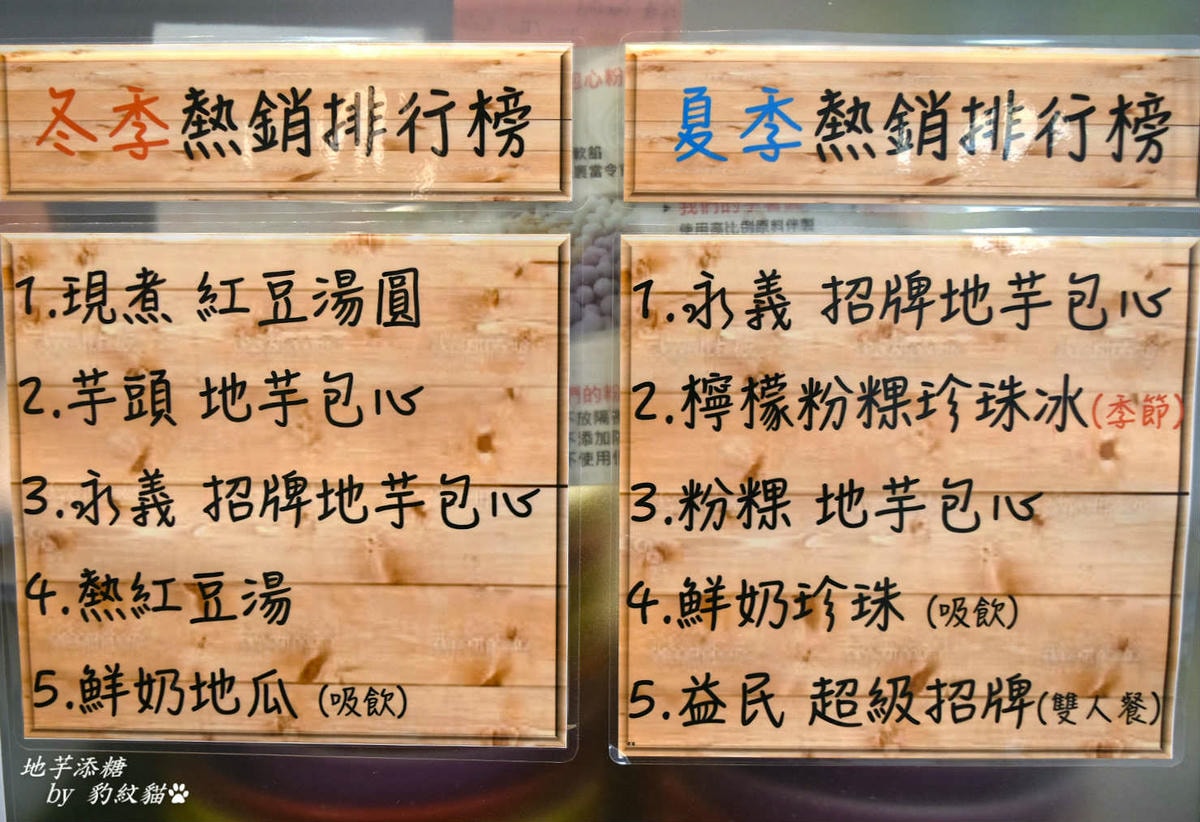 冬季熱銷排行榜
1.現煮 紅豆湯圓
2.芋頭 地芋包心
3.永義 招牌地芋包心
4.熱紅豆湯
5.鮮奶地瓜 (吸飲)
夏季熱銷排行榜
1.永義 招牌地芋包心
2.檸檬粉粿珍珠冰(季節)
3.粉粿 地芋包心
4.鮮奶珍珠 (吸飲)
5.益民 超級招牌(雙人餐)
心粉
軟餡
裹當令
使用高比例原料伴製
們的粉
放隔
添加
使用
地芋添糖
by 豹紋貓